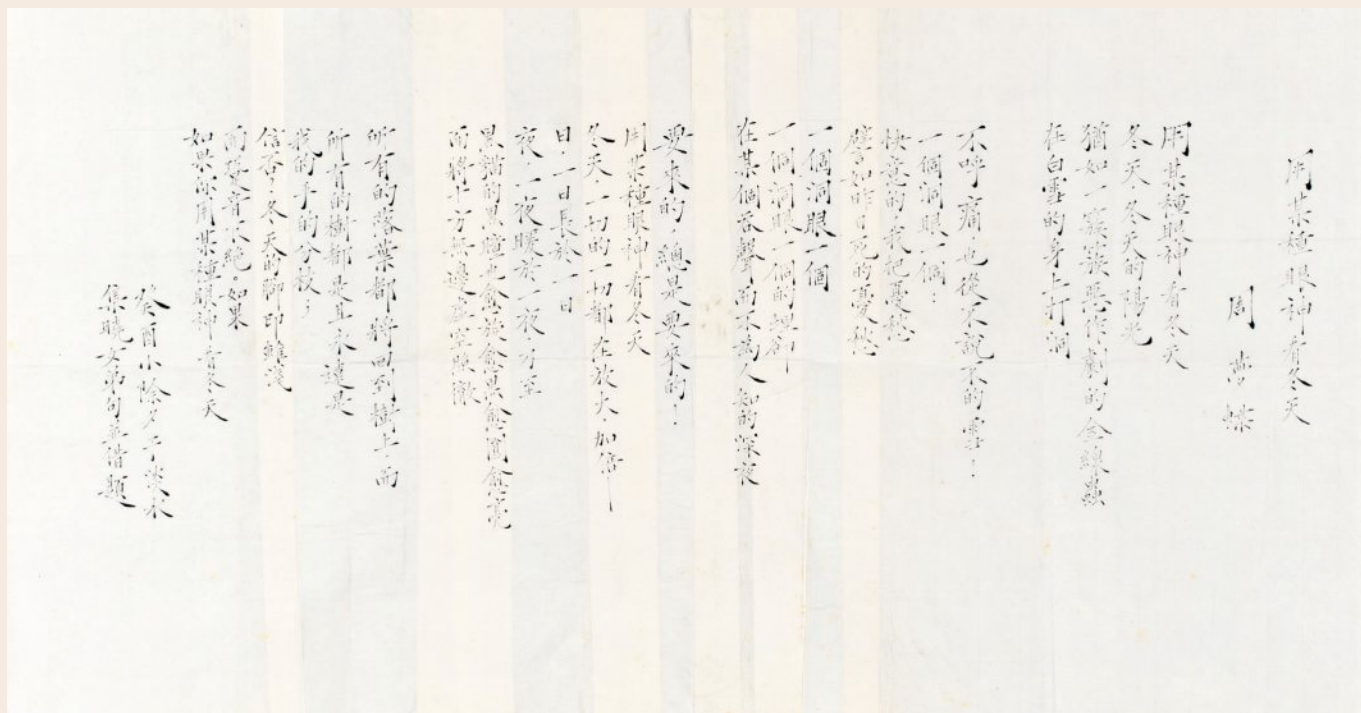 用某種眼神看冬天
周夢蝶
用某種眼神看冬天
冬天,冬天的陽光
猶如一窠蔟惡作劇的金線蟲
在白雲的身上打洞
不呼痛也從不說不的雲!
一個洞眼一個:
快意的我把憂愁
譬如昨日死的憂愁
一個洞眼一個
一個洞眼一個的埋卻
在某個吞聲而不為人知的深夜
要來的,總是要來的!
用某種眼神看冬天
冬天,一切的一切都在放大,加倍——
日,一日長於一日
夜,一夜暖於一夜,乃至
黑貓的黑瞳也愈旋愈黑愈圓愈亮
而將十方無邊虛空照徹
所有的落葉都將回到樹上,而
所有的樹都是且永遠是
我的手的分枝;
信否?冬天的腳印雖淺
而跫音不絕。如果
如果你用某種眼神看冬天
癸酉小除夕于淡水
集曉女弟句並借題